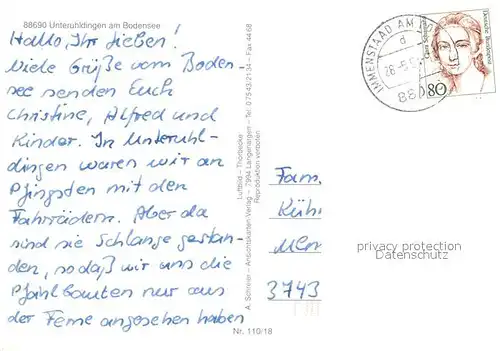 88690 Unteruhldingen am Bodensee
Hallo, Ihr Lieben!
Viele Grüße vom Boden-
see senden Euch
Christine, Alfred und
Kinder. In Unteruhl-
dingen waren wir an
Pfingsten mit den
Fahrrädern. Aber da
sind sie Schlange gestan-
den, so daß wir uns die
Pfahlbauten nur aus
der Ferne angesehen haben
Luftbild – Thorbecke
A. Schreier – Ansichtskarten Verlag – 7994 Langenargen – Tel. 07543/2134 – Fax 4468
Reproduktion verboten
Nr. 110/18
IMMENSTAAD AM
d
Clara Schumann
Deutsche Bundespost
80
Fam.
Küh
3743
privacy protection
Datenschutz